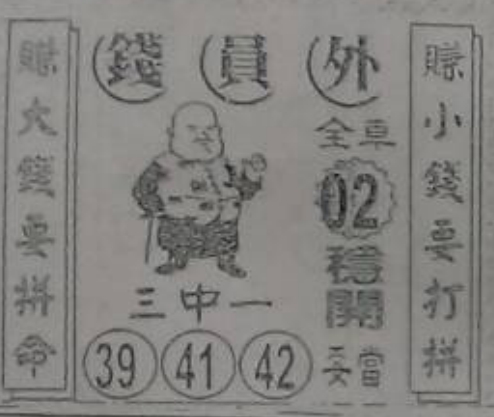 賺小錢要打拼
外員錢
全車
02
穩開
妥當
三中一
39 41 42
賺大錢要拼命